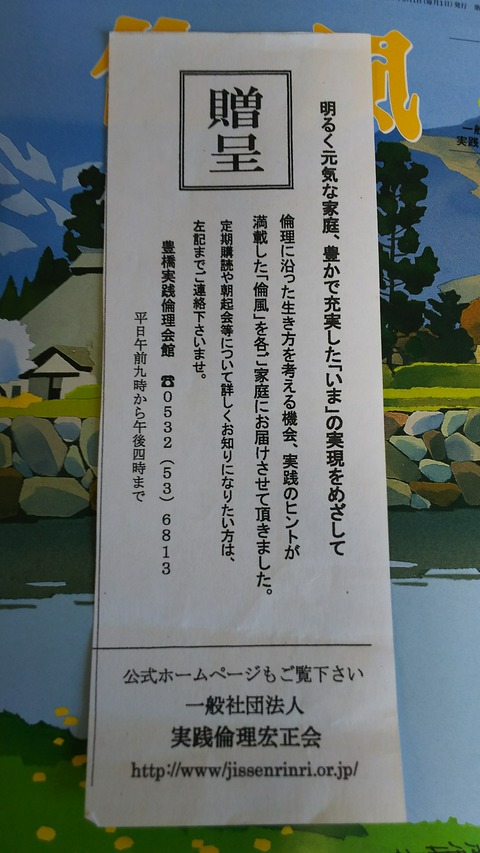 贈呈
明るく元気な家庭、豊かで充実した「いま」の実現をめざして
倫理に沿った生き方を考える機会、実践のヒントが
満載した「倫風」を各ご家庭にお届けさせて頂きました。
定期購読や朝起会等について詳しくお知りになりたい方は、
左記までご連絡下さいませ。
豊橋実践倫理会館 ☎0532（53）6813
平日午前九時から午後四時まで
公式ホームページもご覧下さい
一般社団法人
実践倫理宏正会
http://www/jissenrinri.or.jp/
風